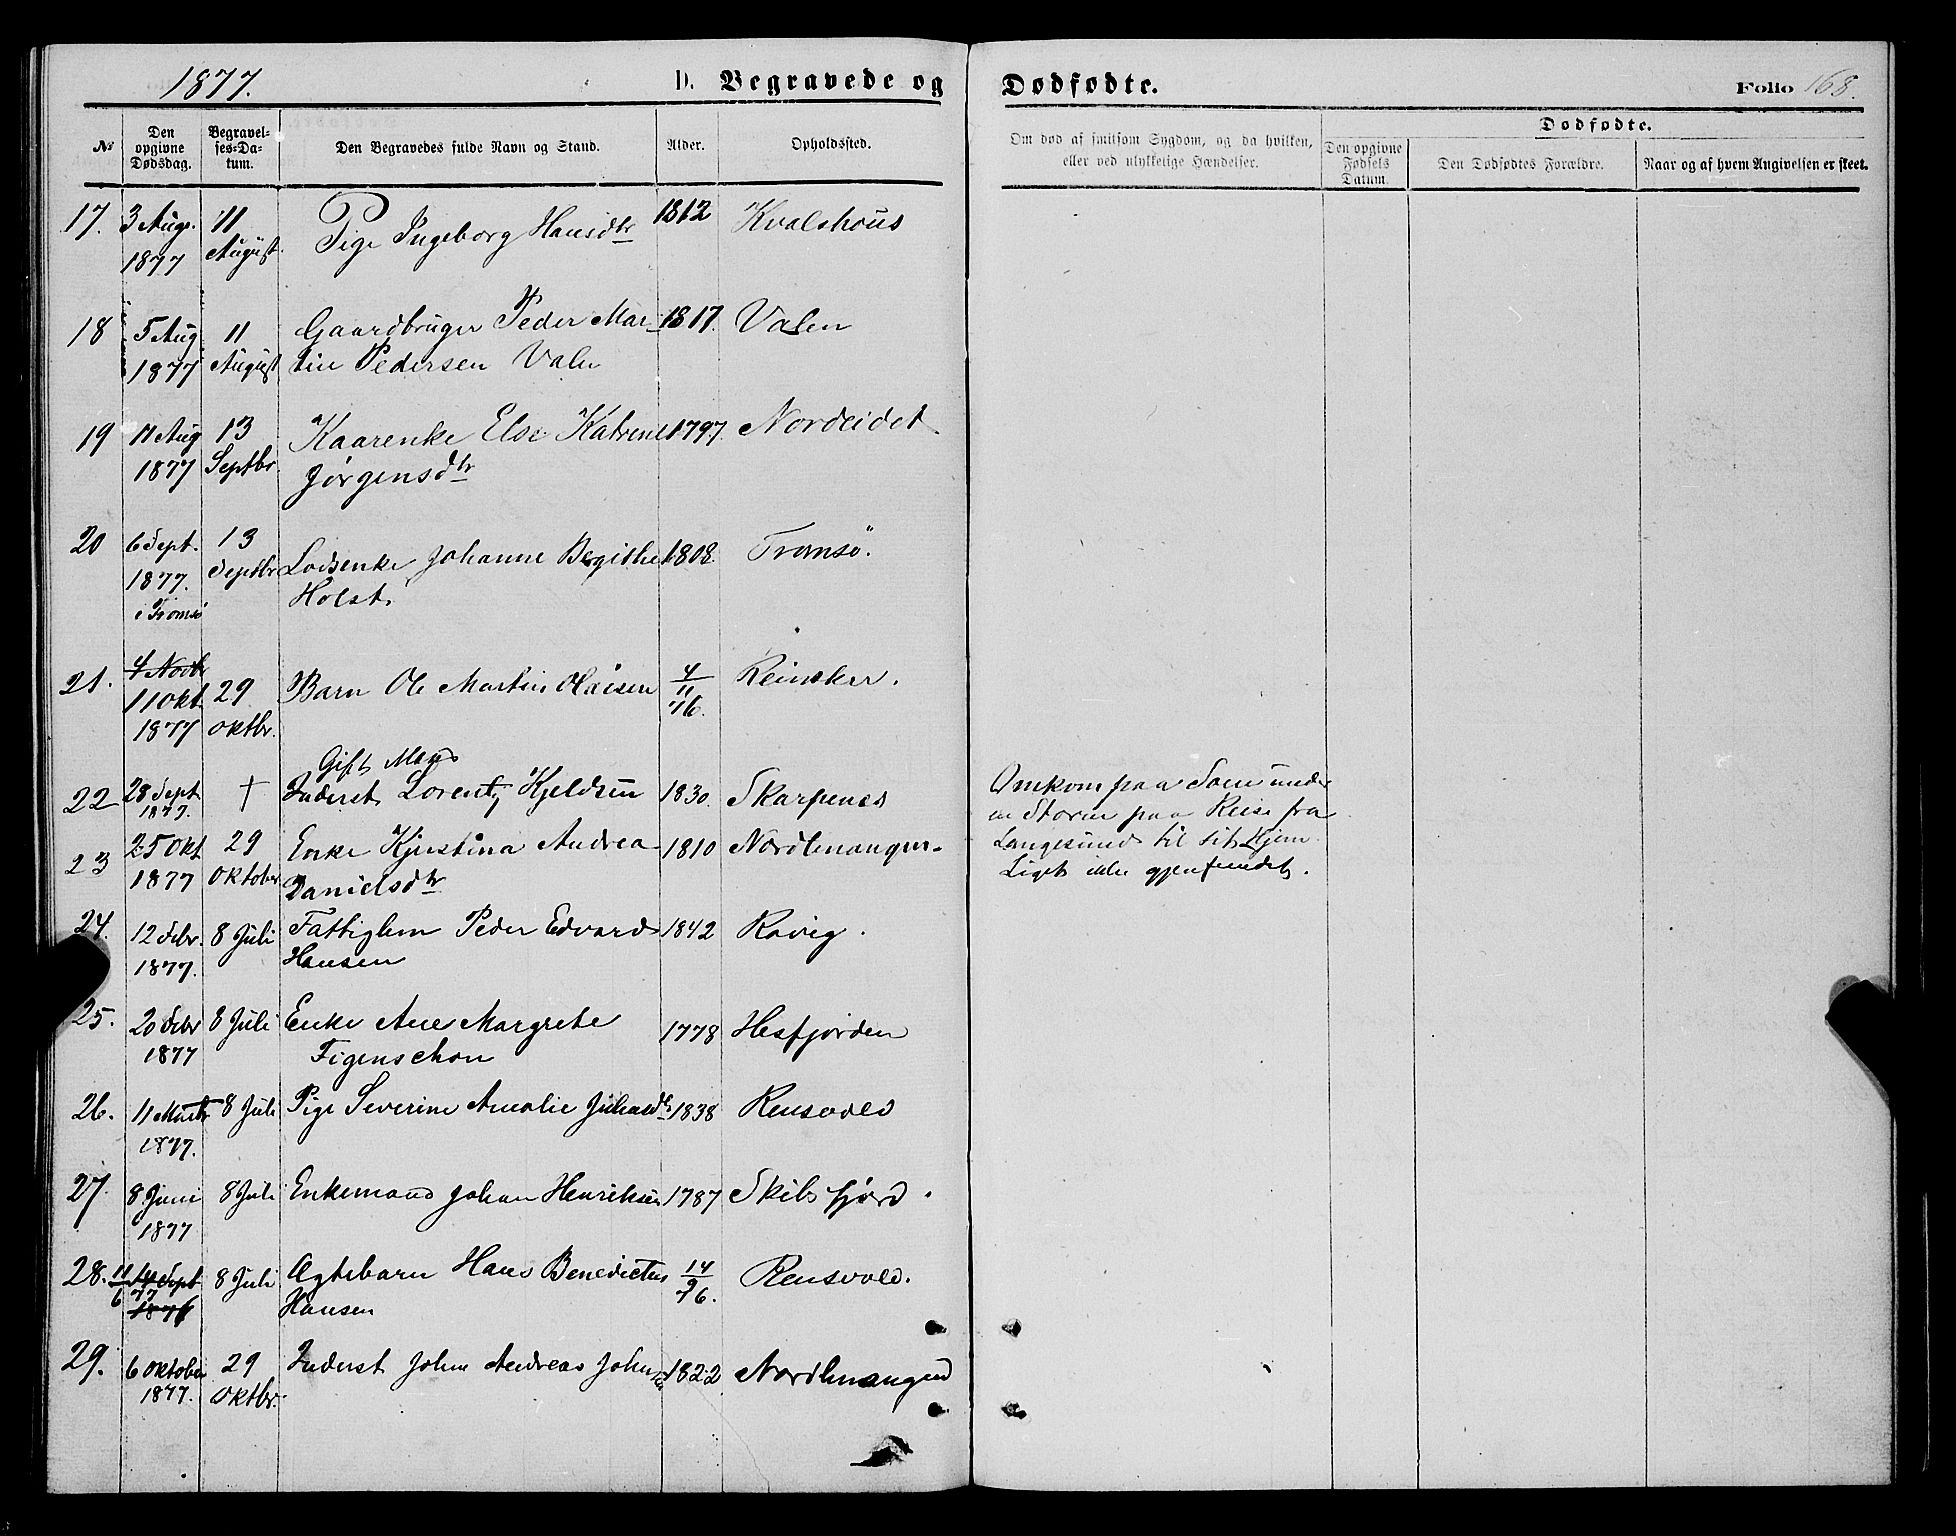 1877. D. Begravede og Dødfødte. Folio 168.
№ Den opgivne Dødsdag. Begravelses-Datum. Den Begravedes fulde Navn og Stand. Alder. Opholdssted. Om død af smitsom Sygdom, og da hvilken, eller ved ulykkelige Hændelser. Dødfødte. Den opgivne Fødsels Datum. Den Dødfødtes Forældre. Naar og af hvem Angivelsen er skeet.
17. 3 Aug. 11 Pige Ingeborg Hansdtr 1812 Kvalshous
1877 August
18 5 Aug 11 Gaardbruger Peder Mar- 1817. Valen
1877 August tin Pedersen Valn
19 11 Aug 13 Kaarenke Else Katrine 1797. Nordeidet
1877 Septbr. Jørgensdtr
20 6 Sept. 13 Lodsenke Johanne Begithe 1808. Tromsö.
1877. Septbr Holst.
i Tromsö
21. 4 Novbr
11 Okt. 29 Barn Ole Martin Olaisen 4/11 76. Reinsker.
1877 Oktbr.
Gift Mand
22 28 Sept † Inderst Lorentz Kjeldsen 1830. Skarpenes Omkom paa Søen under
1877. en Storm paa Reise fra
23 25 Okt 29 Enke Kjerstina Andrea 1810 Nordlenangen. Langesund til sit Hjem.
1877 Oktober Danielsdtr Liget ikke gjenfundet.
24. 12 Febr. 8 Juli Fattiglem Peder Edvard 1842 Ravig.
1877. Hansen
25. 20 Febr 8 Juli Enke Ane Margrete 1778 Hesfjorden
1877 Figenschou
26. 11 Marts 8 Juli Pige Severine Amalie Johansdtr 1838 Rensvold
1877.
27. 8 Juni 8 Juli Enkemand Johan Henriksen 1787 Skibsfjord.
1877
28. 11/6 77 14 Sept 1876 8 Juli Ægtebarn Hans Benedictus 14/9 76. Rensvold.
Hansen
29. 6 Oktober 29 Inderst John Andreas Johnsen 1822 Nordlenangen
1877. Oktbr.